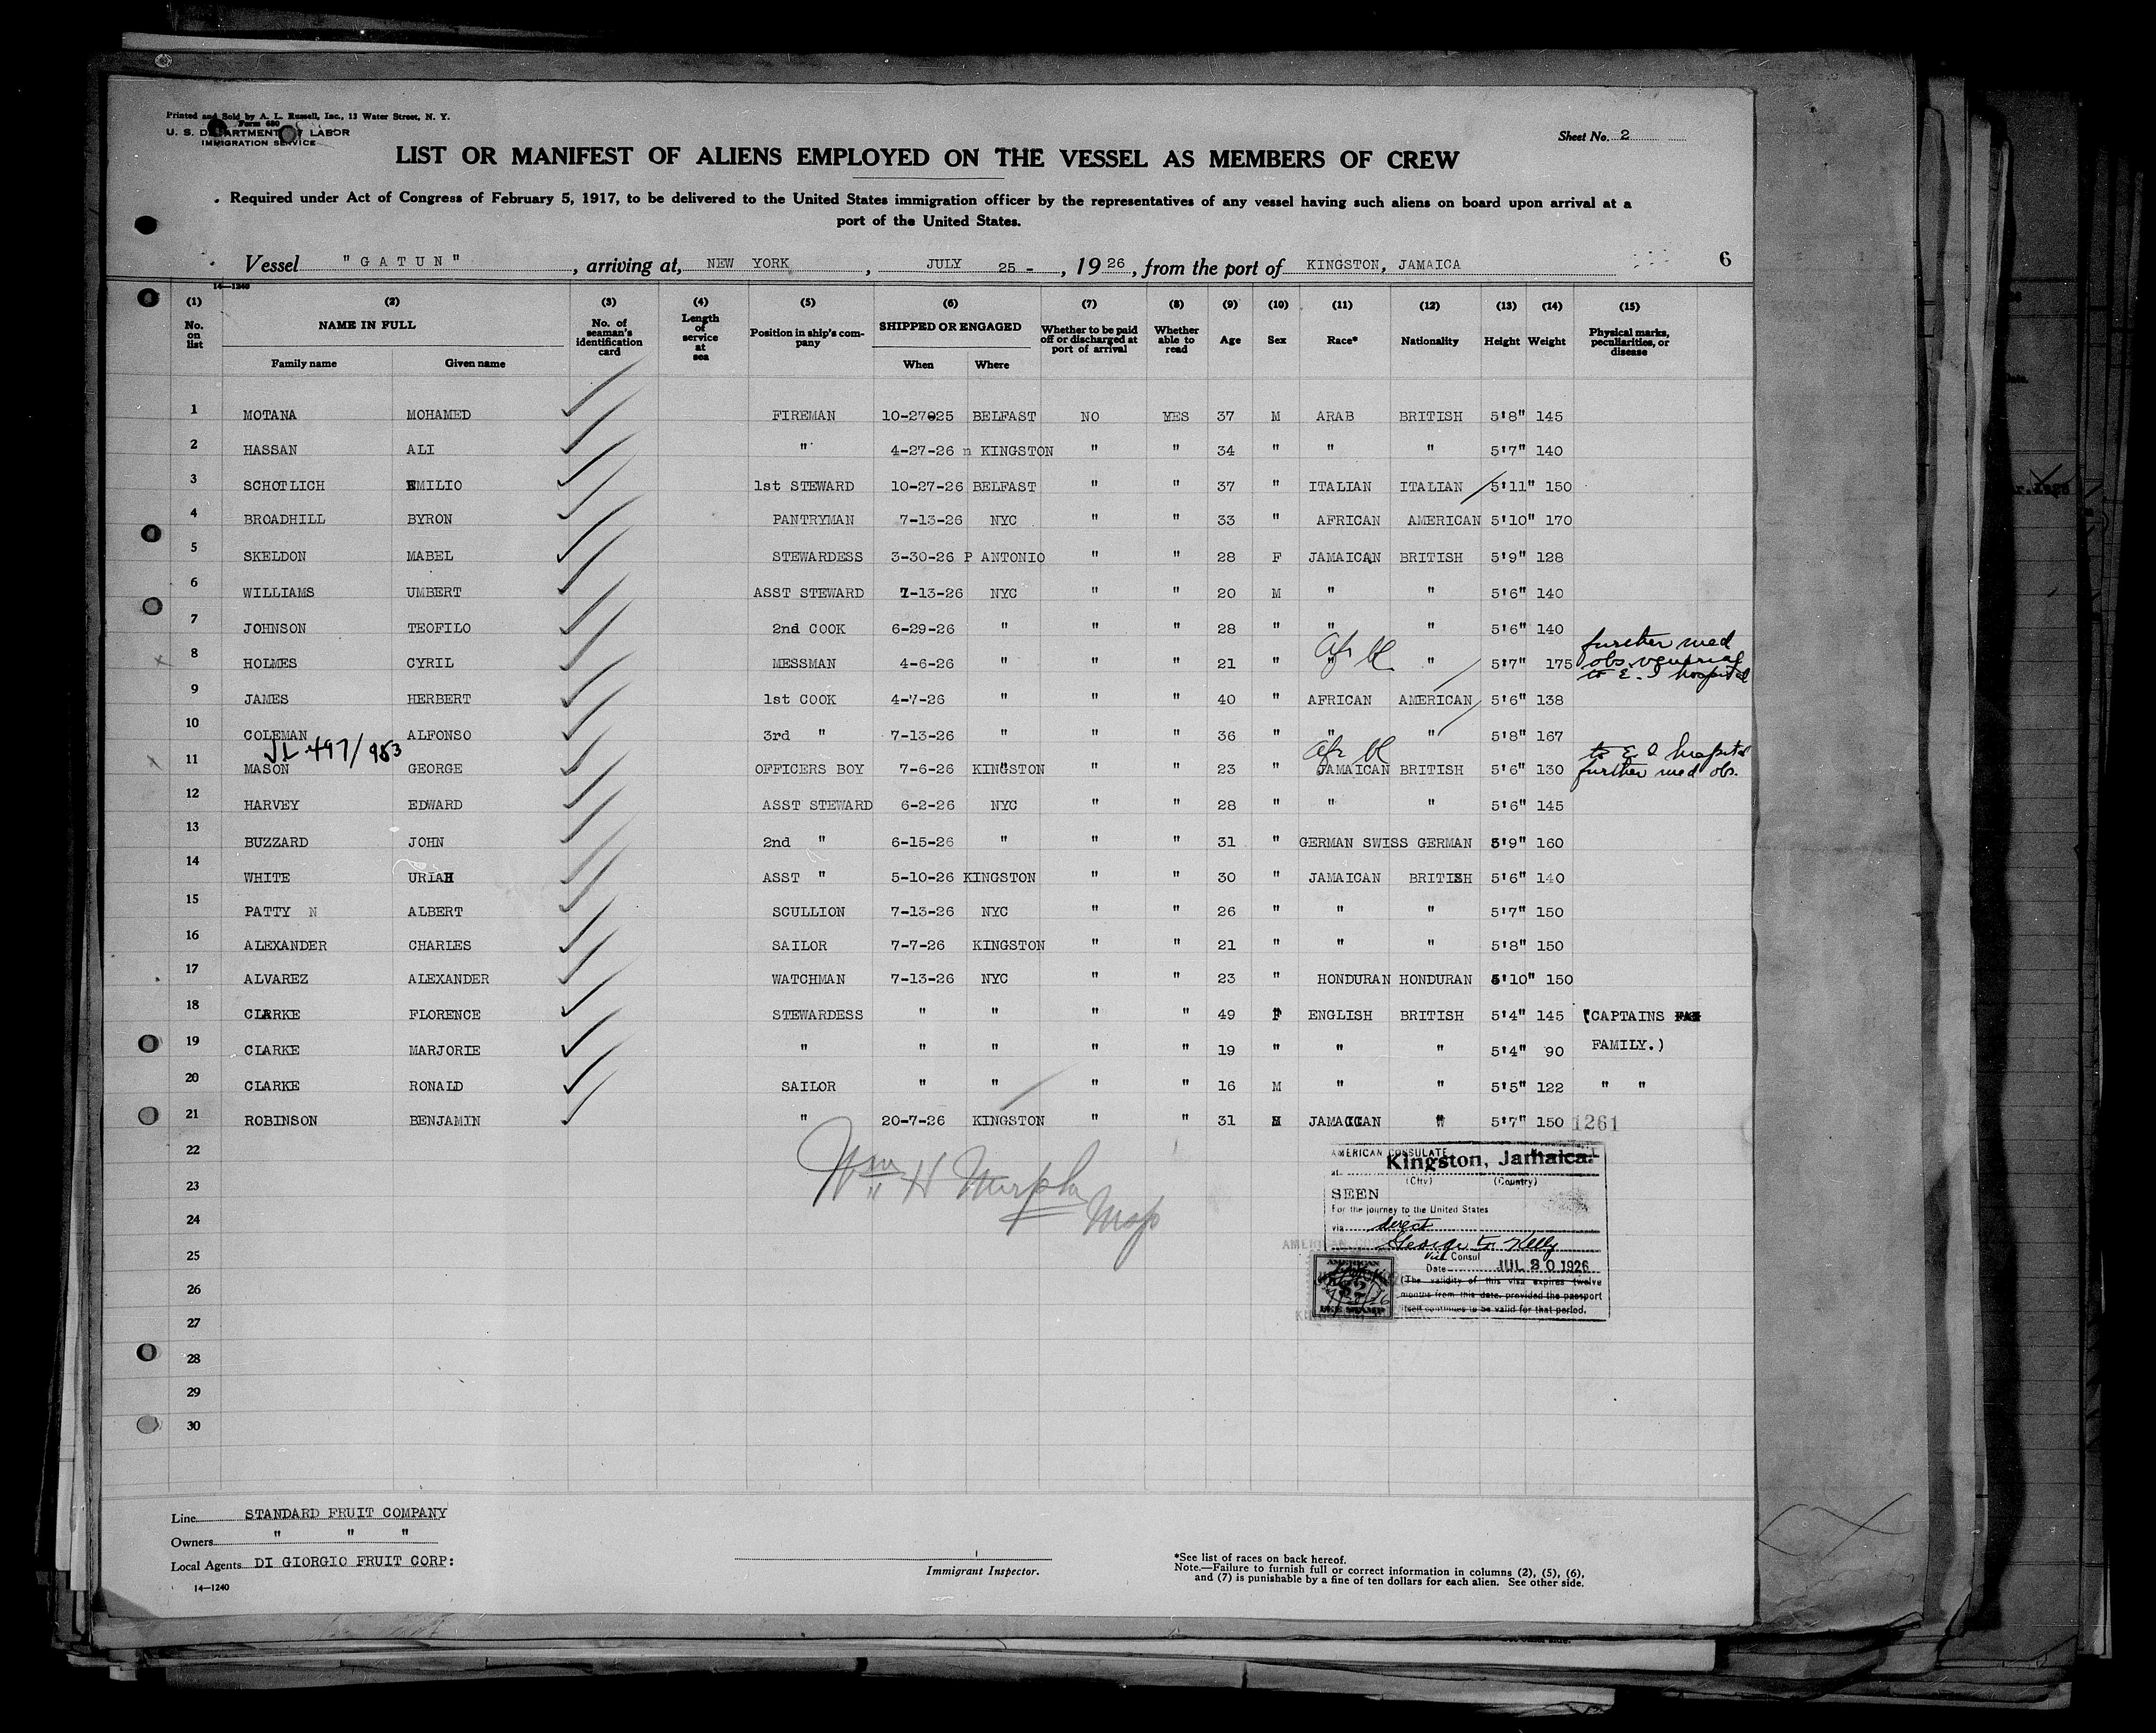 Printed and Sold by A. L. Russell, Inc., 13 Water Street, N. Y.
Form 680
U. S. DEPARTMENT OF LABOR
IMMIGRATION SERVICE
Sheet No. 2
LIST OR MANIFEST OF ALIENS EMPLOYED ON THE VESSEL AS MEMBERS OF CREW
Required under Act of Congress of February 5, 1917, to be delivered to the United States immigration officer by the representatives of any vessel having such aliens on board upon arrival at a
port of the United States.
Vessel "GATUN", arriving at, NEW YORK, JULY 25-, 1926, from the port of KINGSTON, JAMAICA 6
14—1240
(1) (2) (3) (4) (5) (6) (7) (8) (9) (10) (11) (12) (13) (14) (15)
No. on list NAME IN FULL Family name Given name No. of seaman's identification card Length of service at sea Position in ship's company SHIPPED OR ENGAGED When Where Whether to be paid off or discharged at port of arrival Whether able to read Age Sex Race* Nationality Height Weight Physical marks, peculiarities, or disease
1 MOTANA MOHAMED FIREMAN 10-27-25 BELFAST NO YES 37 M ARAB BRITISH 5'8" 145
2 HASSAN ALI " 4-27-26 n KINGSTON " " 34 " " " 5'7" 140
3 SCHOTLICH EMILIO 1st STEWARD 10-27-26 BELFAST " " 37 " ITALIAN ITALIAN 5'11" 150
4 BROADHILL BYRON PANTRYMAN 7-13-26 NYC " " 33 " AFRICAN AMERICAN 5'10" 170
5 SKELDON MABEL STEWARDESS 3-30-26 P ANTONIO " " 28 F JAMAICAN BRITISH 5'9" 128
6 WILLIAMS UMBERT ASST STEWARD 7-13-26 NYC " " 20 M " " 5'6" 140
7 JOHNSON TEOFILO 2nd COOK 6-29-26 " " " 28 " " " 5'6" 140
8 HOLMES CYRIL MESSMAN 4-6-26 " " " 21 " " Afr bl " 5'7" 175 further med obs. venerial to E. I hospital
9 JAMES HERBERT 1st COOK 4-7-26 " " " 40 " AFRICAN AMERICAN 5'6" 138
10 COLEMAN ALFONSO 3rd " 7-13-26 " " " 36 " " " 5'8" 167
497/953
11 MASON GEORGE OFFICERS BOY 7-6-26 KINGSTON " " 23 " Afr bl JAMAICAN BRITISH 5'6" 130 to E I hospital further med obs.
12 HARVEY EDWARD ASST STEWARD 6-2-26 NYC " " 28 " " " 5'6" 145
13 BUZZARD JOHN 2nd " 6-15-26 " " " 31 " GERMAN SWISS GERMAN 5'9" 160
14 WHITE URIAH ASST " 5-10-26 KINGSTON " " 30 " JAMAICAN BRITISH 5'6" 140
15 PATTY N ALBERT SCULLION 7-13-26 NYC " " 26 " " " 5'7" 150
16 ALEXANDER CHARLES SAILOR 7-7-26 KINGSTON " " 21 " " " 5'8" 150
17 ALVAREZ ALEXANDER WATCHMAN 7-13-26 NYC " " 23 " HONDURAN HONDURAN 5'10" 150
18 CLARKE FLORENCE STEWARDESS " " " " 49 F ENGLISH BRITISH 5'4" 145 (CAPTAINS
19 CLARKE MARJORIE " " " " " 19 " " " 5'4" 90 FAMILY.)
20 CLARKE RONALD SAILOR " " " " 16 M " " 5'5" 122 " "
21 ROBINSON BENJAMIN " 20-7-26 KINGSTON " " 31 M JAMAICAN " 5'7" 150 1261
22
23
24
25
26
27
28
29
30
Wm H Murphy
AMERICAN CONSULATE
at Kingston, Jamaica.
(City) (Country)
SEEN
For the journey to the United States
via direct
Vice Consul
Date JUL 20 1926
(The validity of this visa expires twelve
months from this date, provided the passport
itself continues to be valid for that period.
AMERICAN
$2
FEE STAMP
Line STANDARD FRUIT COMPANY
Owners " " "
Local Agents DI GIORGIO FRUIT CORP:
14—1240
Immigrant Inspector.
*See list of races on back hereof.
Note.—Failure to furnish full or correct information in columns (2), (5), (6),
and (7) is punishable by a fine of ten dollars for each alien. See other side.